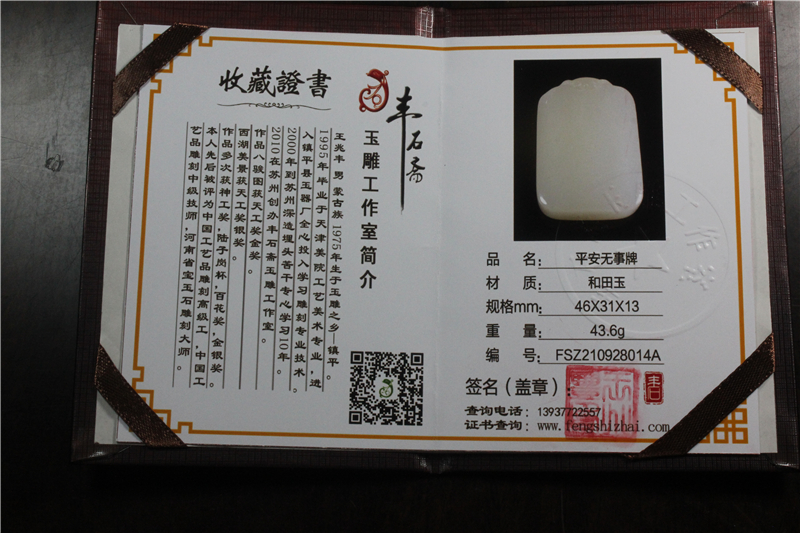 收藏證書
丰石斋
玉雕工作室简介
王兆丰 男 蒙古族 1975年生于玉雕之乡—镇平。
1995年毕业于天津美院工艺美术专业，进
入镇平县玉器厂全心投入学习雕刻专业技术。
2000年到苏州深造埋头苦干专心学习10年。
2010在苏州创办丰石斋玉雕工作室。
作品八骏图获天工奖金奖。
西湖美景获天工奖银奖。
作品多次获神工奖，陆子岗杯，百花奖，金银奖。
本人先后被评为中国工艺品雕刻高级工，中国工
艺品雕刻中级技师，河南省宝玉石雕刻大师。
品 名：平安无事牌
材 质：和田玉
规格mm：46X31X13
重 量：43.6g
编 号：FSZ210928014A
签名（盖章）：
查询电话：13937722557
证书查询：www.fengshizhai.com